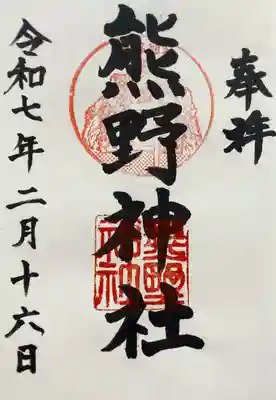 奉拝
熊野神社
熊野神社
令和七年二月十六日